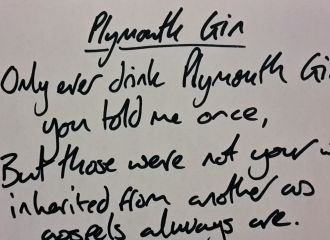 Plymouth Gin
Only ever drink Plymouth Gi
you told me once,
But those were not your w
inherited from another as
gospels always are.